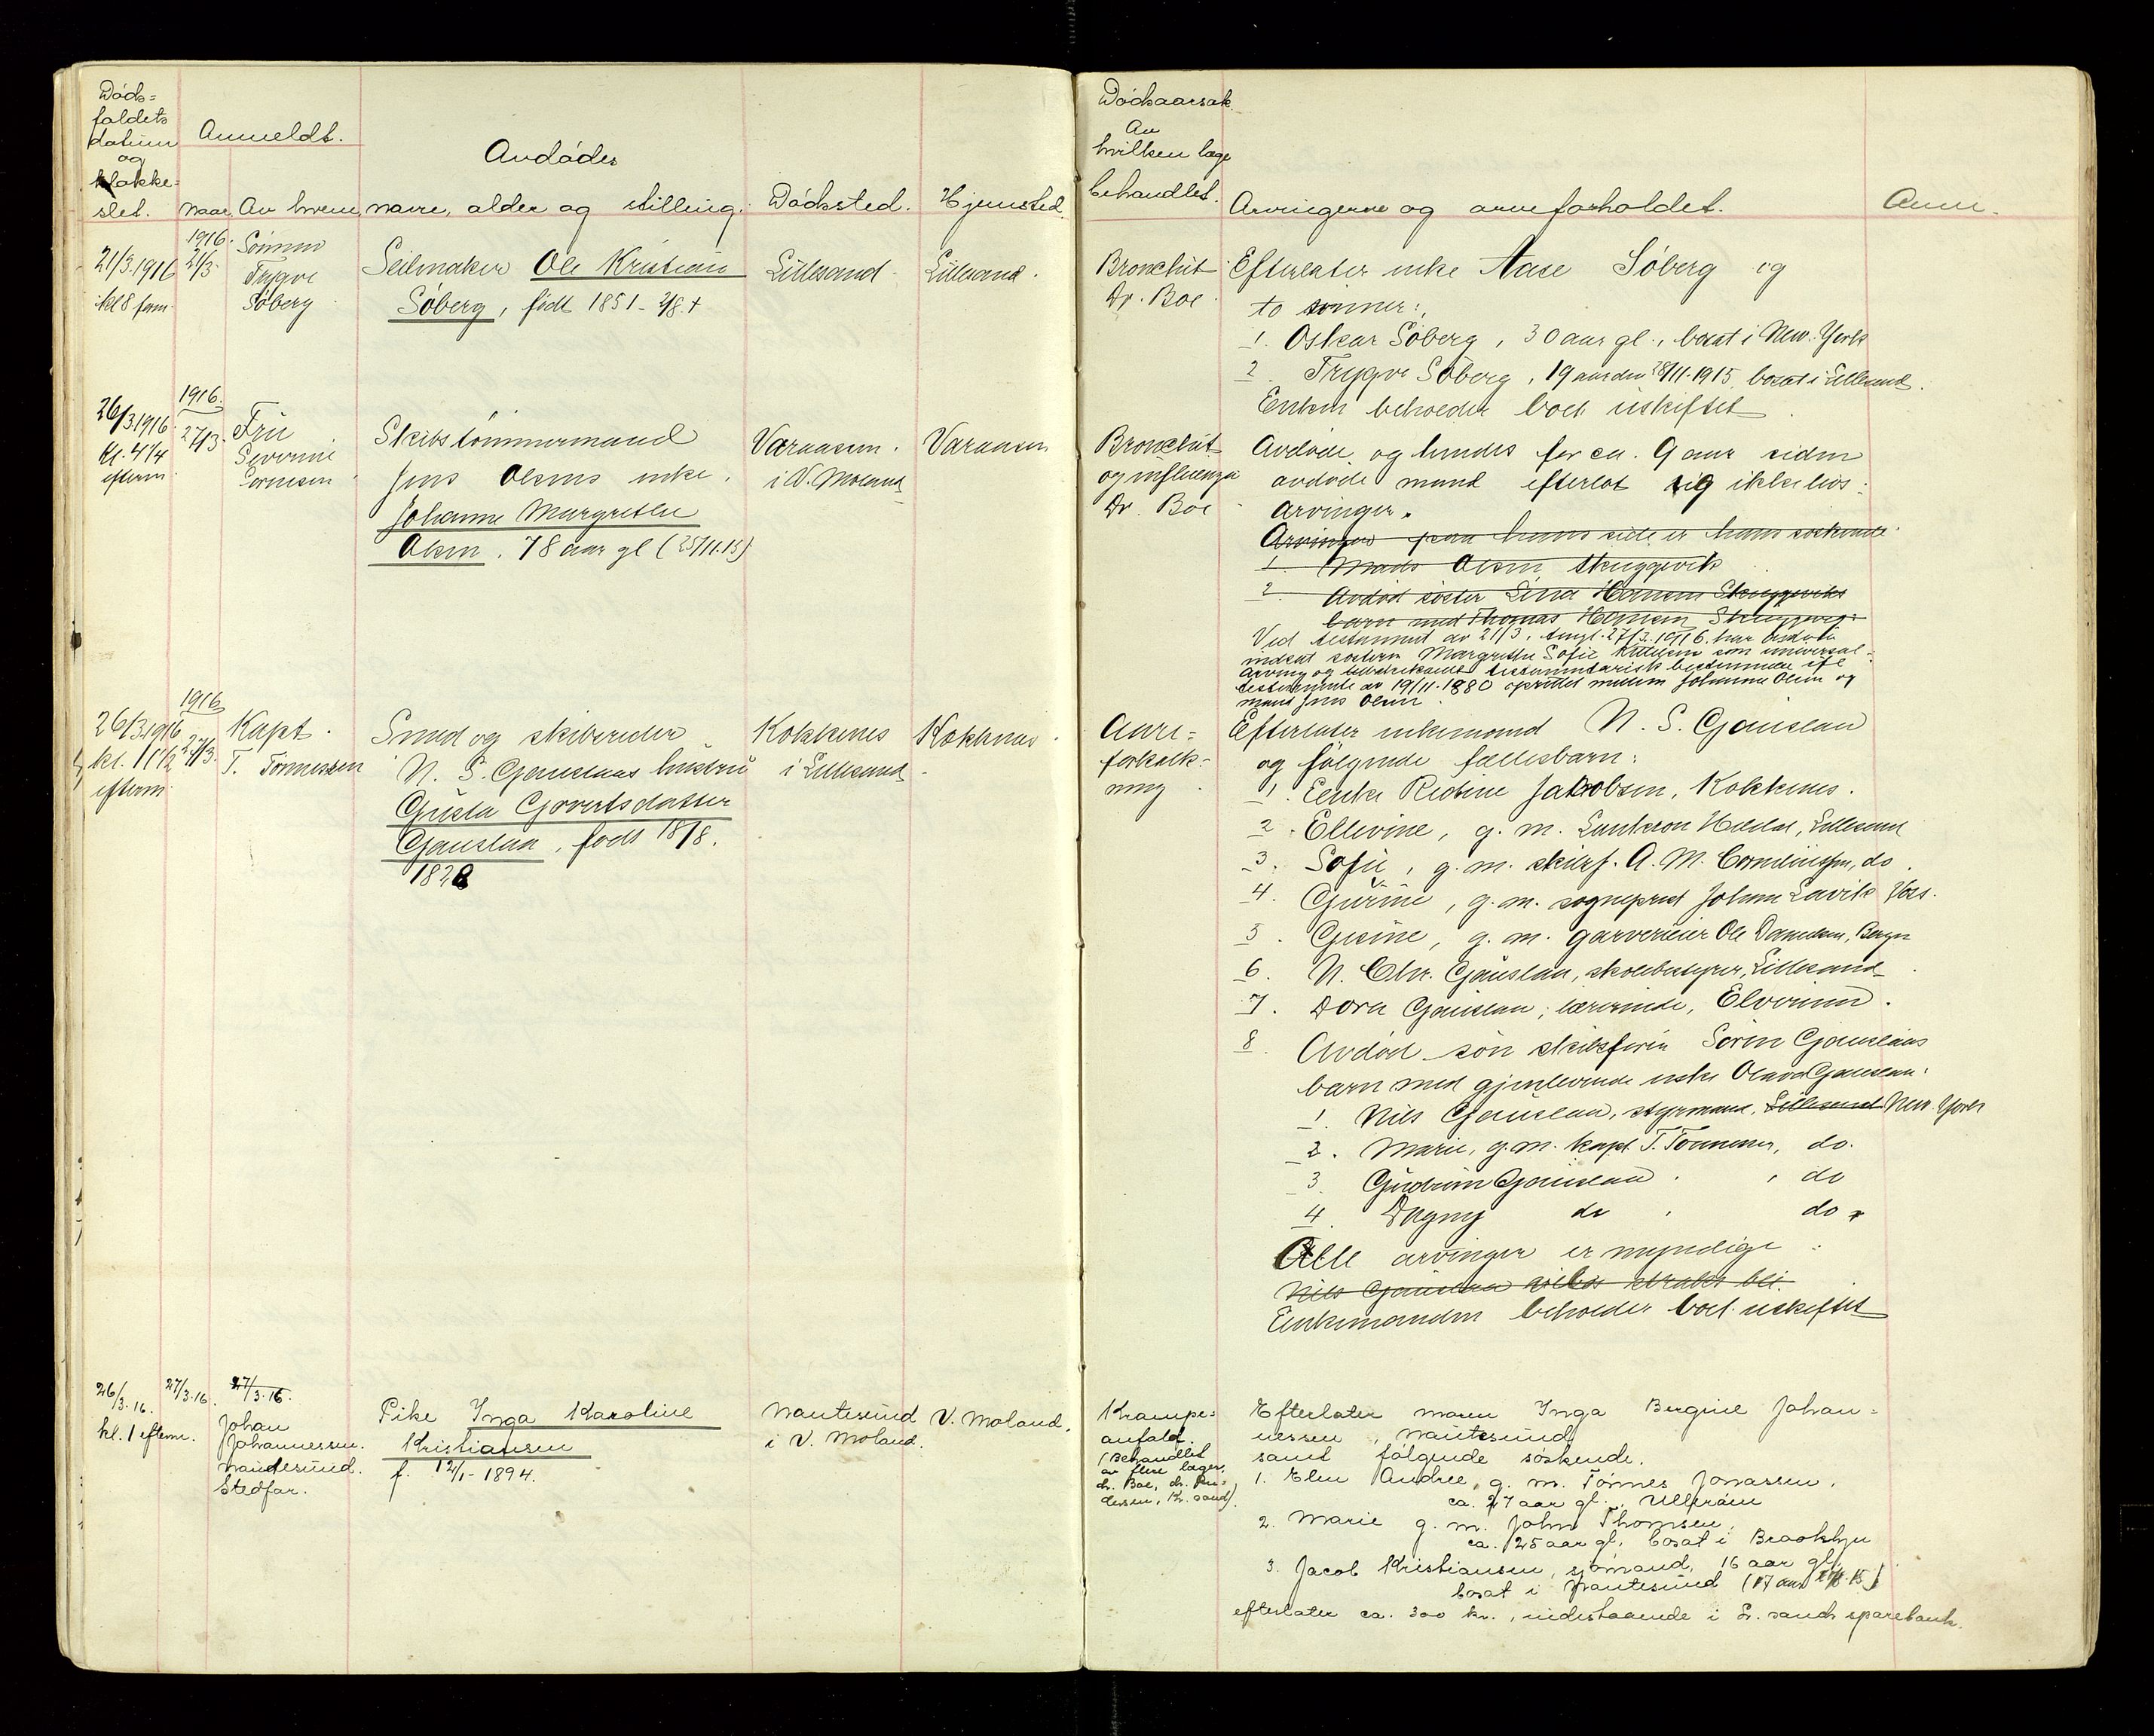 Døds=
faldets
datum
og
klokke=
slet.
Anmeldt.
naar
Av hvem
Avdødes
navn, alder og stilling.
Dødssted.
Hjemsted.
Dødsaarsak
Av
hvilken læge
behandlet.
Arvingerne og arveforholdet.
Anm.
21/3.1916
kl 8 fem.
1916.
21/3.
Sønnen
Trygve
Søberg
Seilmaker Ole Kristian
Søberg, født 1851 - 2/8. +
Lillesand.
Lillesand.
Bronchit
Dr. Boe.
Efterlater enke Aase Søberg og
to sønner:
1. Oskar Søberg, 30 aar gl., bosat i New-York
2. Trygve Søberg, 19 aar den 28/11-1915, bosat i Lillesand.
Enken beholder boet uskiftet.
26/3 1916
kl. 4 1/4
efterm.
1916.
27/3.
Fru
Severine
Skibstømmermand
Jens Olsens enke.
Johanne Margrethe
Olsen. 78 aar gl (25/11.15)
Varaasen.
i V. Moland
Varaasen
Bronchit
og influenza
Dr. Boe
Avdøde og hendes for ca. 9 aar siden
avdøde mand efterlot sig ikke livs:
arvinger.
Arvinger paa hans side er hans søskende:
1. Mads Olsen Skuggevik
2. Avdød søster Lina Hansen Skuggeviks
barn med Thomas Hansen Skuggevig:
Ved testament av 21/3, tingl. 27/3.1916. har avdøde
indsat søsteren Margrethe Sofie Kittelsen som universal=
arving og tilbakekaldt testamentarisk bestemmelse ifl
testamente av 19/11-1880 oprettet mellem Johanne Olsen og
mand Jens Olsen.
26/3.1916
kl. 11 1/2
efterm.
1916
27/3.
Kapt.
T. Tønnessen
Smed og skibsreder
N. S. Gauslaas hustru
Gusta Govertsdatter
Gauslaa, født 1818.
1828
Kokkenes
i Lillesand.
Kokkenes.
Aare=
forkalk=
ning.
Efterlater enkemand N. S. Gauslaa
og følgende fællesbarn:
1. Enke Redine Jakobsen, Kokkenes.
2. Ellevine, g. m. Lankron Heldal, Lillesand
3. Sofie, g. m. skibsf. A. M. Corneliussen, do.
4. Gurine, g. m. sogneprest Johan Lavik Voss.
5. Gusine, g. m. garverieier Ole Danielsen, Bergen
6. N. Chr. Gauslaa, skolebestyrer, Lillesand.
7. Dora Gauslaa, lærerinde, Elverum.
8. Avdød søn skibsfører Søren Gauslaas
barn med gjenlevende enke Olava Gauslaa:
1. Nils Gauslaa, styrmand, Lillesand New-York
2. Marie, g. m. kapt. T. Tønnessen, do.
3. Gudrun Gauslaa, do
4. Dagny do do.
Alle arvinger er myndige.
Nils Gauslaa
Enkemanden beholder boet uskiftet
26/3.16.
kl. 1 efterm.
27/3.16.
27/3.16.
Johan
Johannessen.
Nautesund.
Stedfar.
Pike Inga Karoline
Kristiansen
f. 12/1-1894.
Nautesund
i V. Moland.
V. Moland.
Krampe=
anfald.
(Behandlet
av flere læger,
dr. Boe,
Kr. sand).
Efterlater moren Inga Bergine Johan=
nessen, Nautesund
samt følgende søskende.
1. Elen Andree, g. m. Tønnes Jonassen,
ca. 27 aar gl.,
2. Marie g. m. John Thomsen,
ca. 25 aar gl. bosat i Brooklyn
3. Jacob Kristiansen, sjømand, 16 aar gl.,
bosat i Nautesund
efterlater ca. 300 kr., indestaaende i L. sands sparebank.